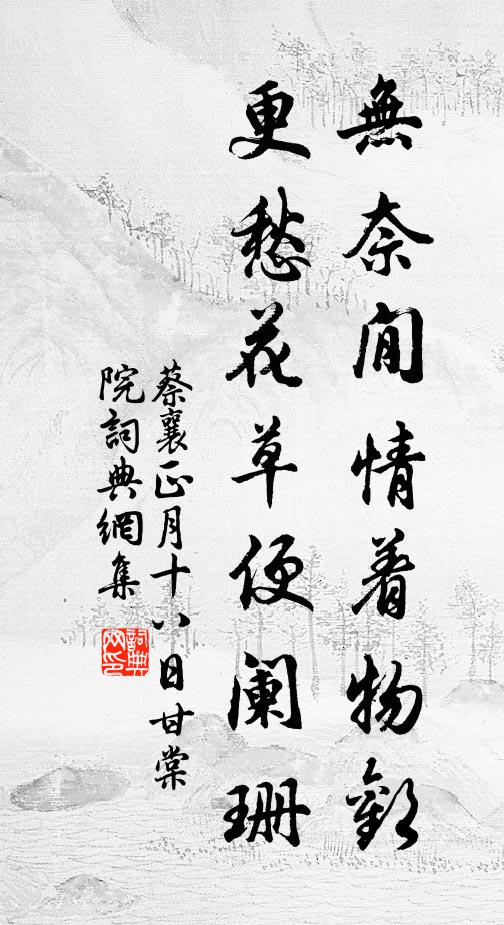 無奈閒情着物歡
更愁花草便闌珊
蔡襄正月十八日甘棠
院詞典網集
詞典網印